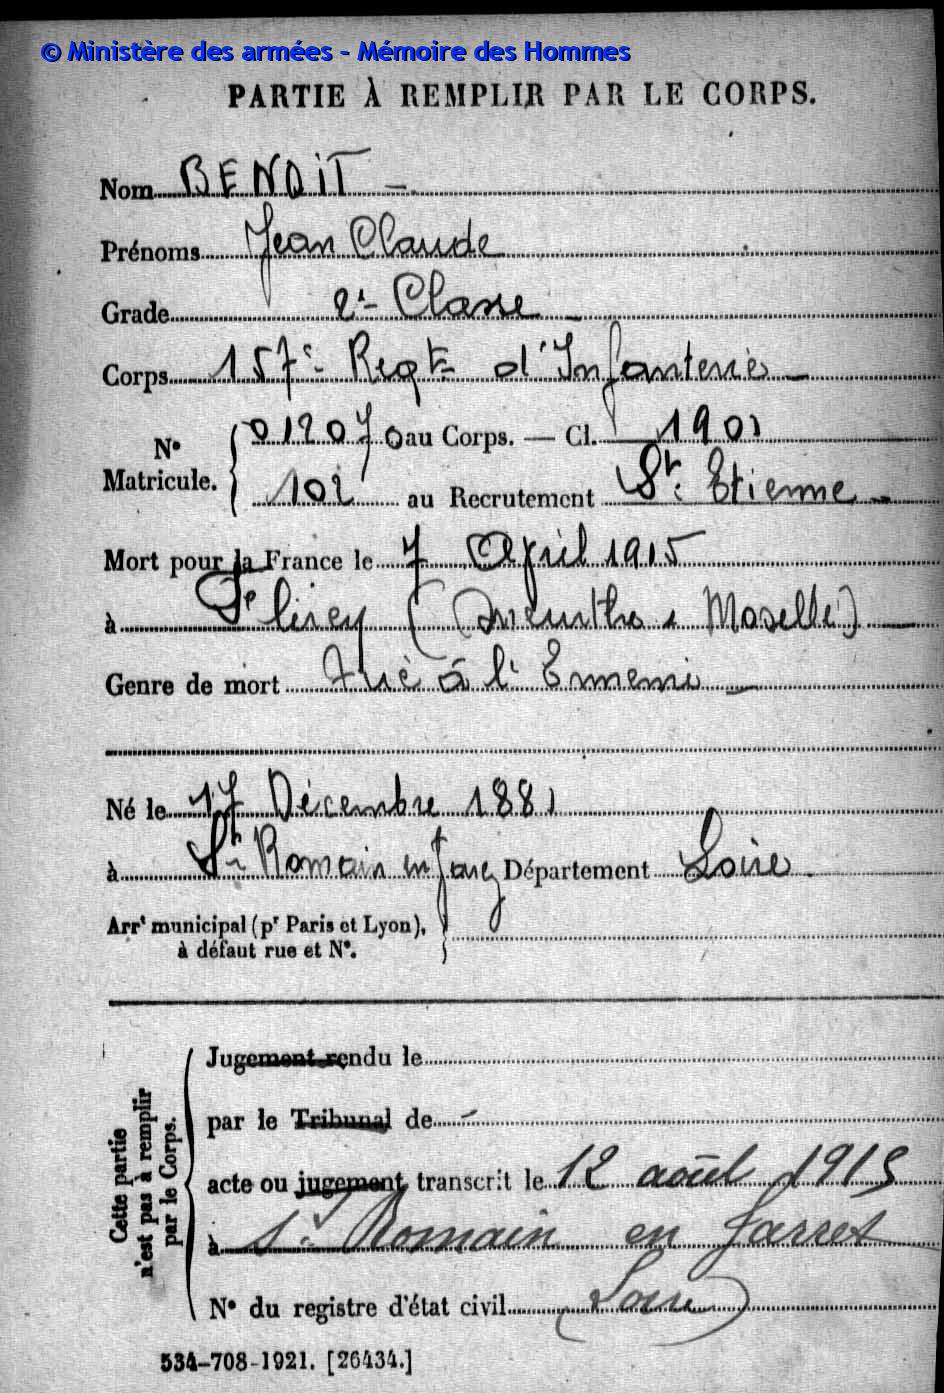 © Ministère des armées - Mémoire des Hommes
PARTIE À REMPLIR PAR LE CORPS.
Nom BENOIT –
Prénoms Jean Claude
Grade 2e Classe –
Corps 157e Regt d'Infanterie –
N° Matricule. 012070 au Corps. — Cl. 1901
102 au Recrutement St. Etienne –
Mort pour la France le 7 April 1915
à Flirey (Meurthe & Moselle) –
Genre de mort Tué à l'Ennemi –
Né le 17 Décembre 1881
à St Romain en Jarez Département Loire.
Arrt municipal (pr Paris et Lyon),
à défaut rue et N°.
Cette partie n'est pas à remplir par le Corps.
Jugement rendu le
par le Tribunal de –
acte ou jugement transcrit le 12 août 1915
à St. Romain en Jarret
N° du registre d'état civil (Loire)
534-708-1921. [26434.]